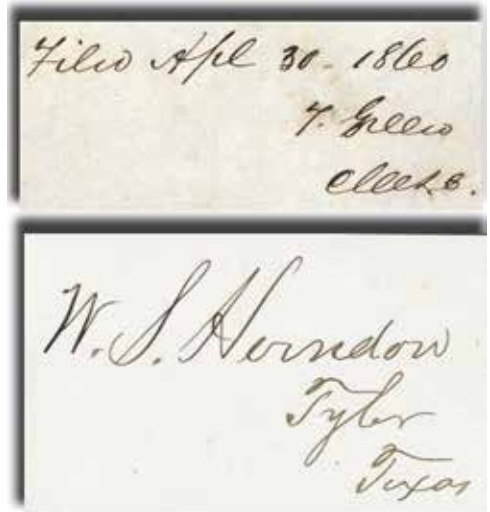 Filed Apl 30 - 1860
T. Green
W. S. Herndon
Tyler
Texas